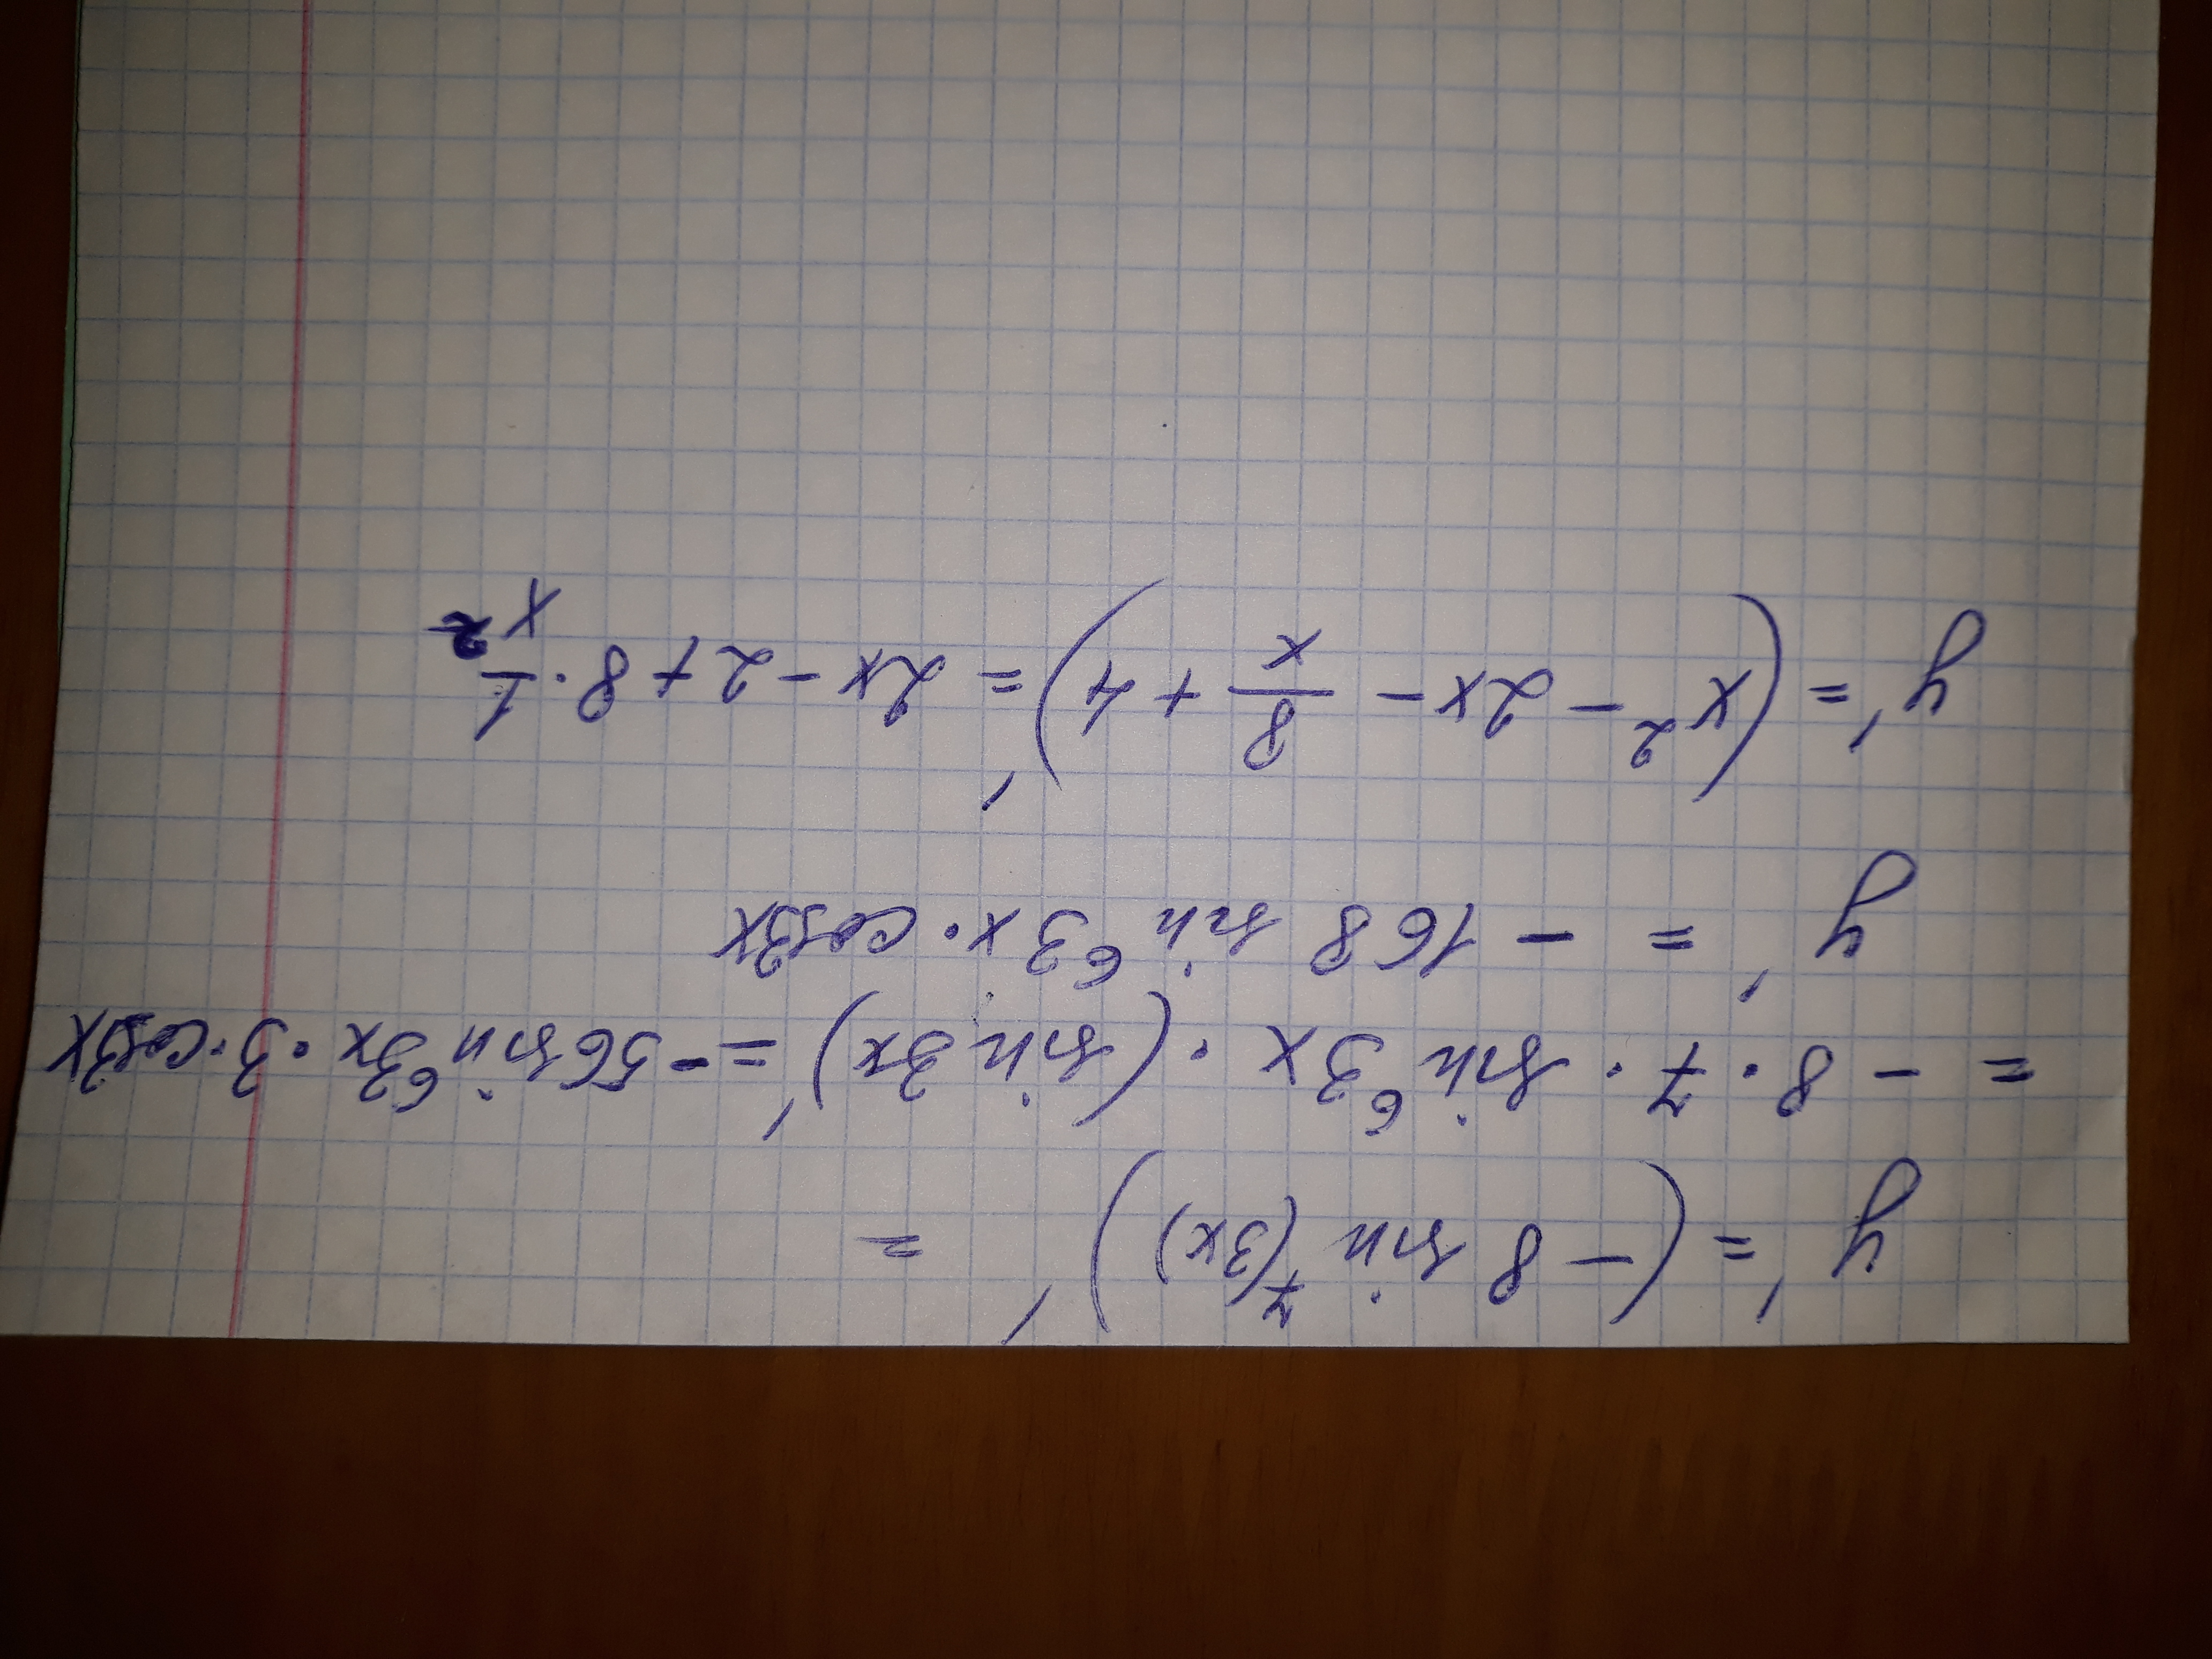 y' = (-8 sin⁷(3x))' =
= -8·7·sin⁶3x·(sin 3x)' = -56 sin⁶3x·3·cos3x
y' = -168 sin⁶3x·cos3x
y' = (x² - 2x - 8/x + 4)' = 2x - 2 + 8·1/x²